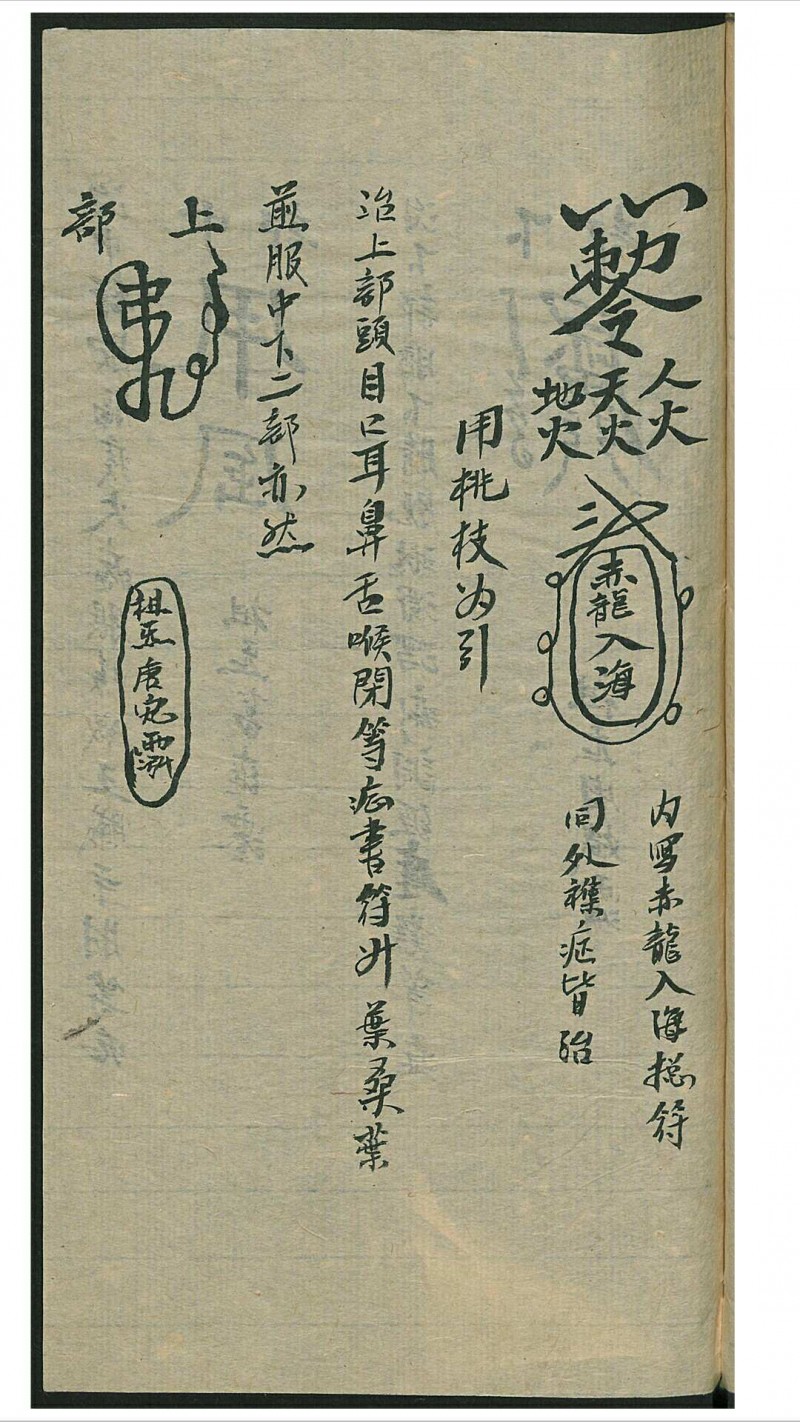 敕令
人火
天火
地火
赤龍入海
内寫赤龍入海總符
同外襍症皆治
用桃枝为引
治上部頭目口耳鼻舌喉閉等症書符 葉桑葉
煎服中下二部亦然
上
部
祖